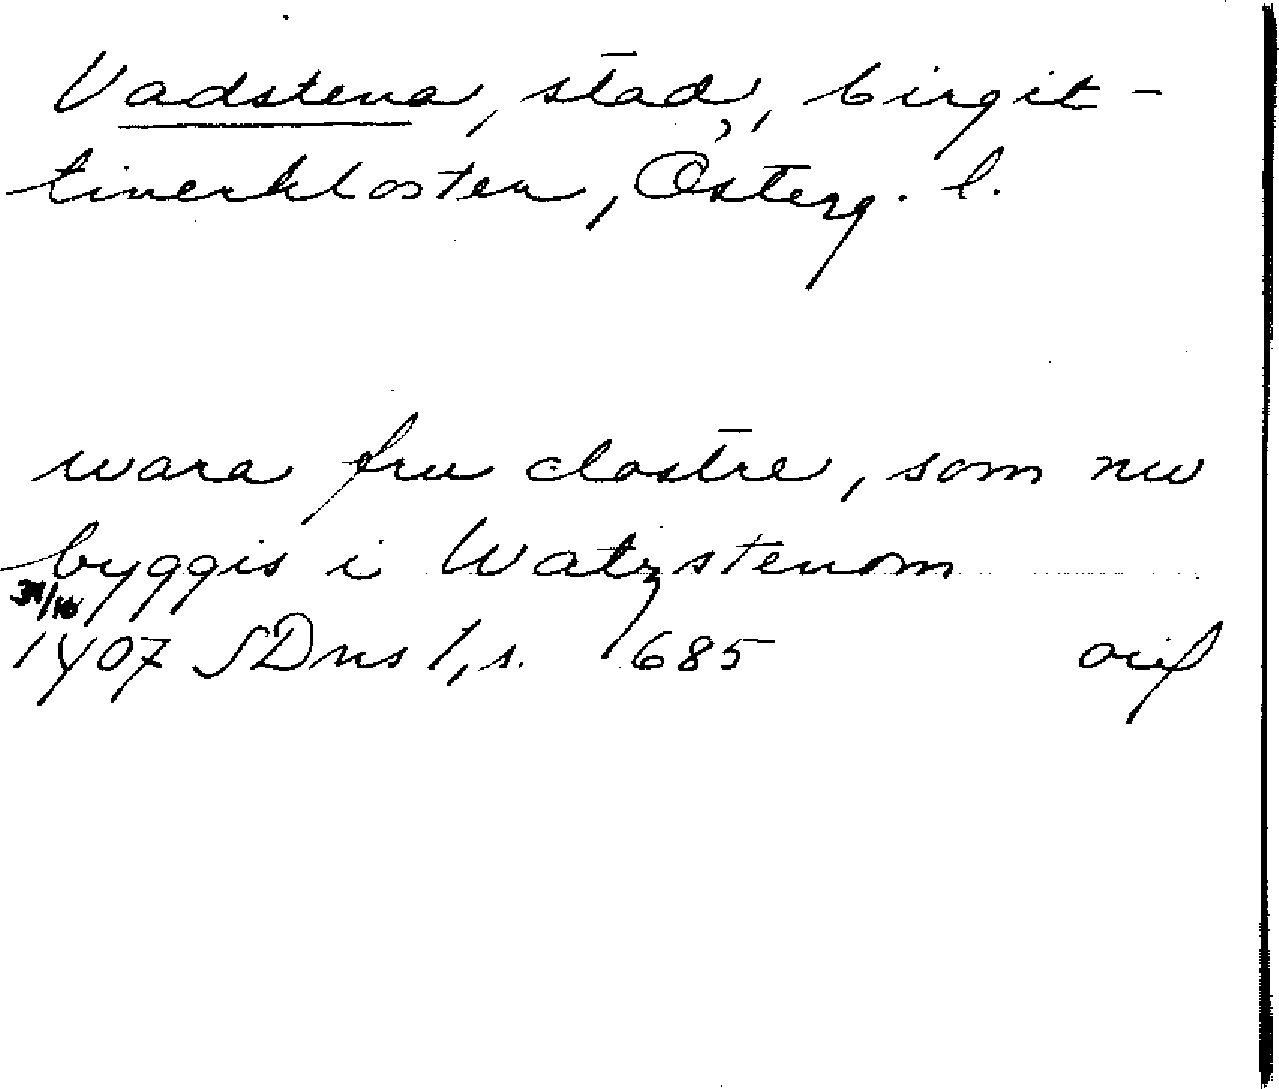 Vadstena, stad, birgit-
tinerkloster, Österg. l.
wara fru clostre, som nw
byggis i Watzstenom
31/10
1407 SDns 1, s. 685 orig